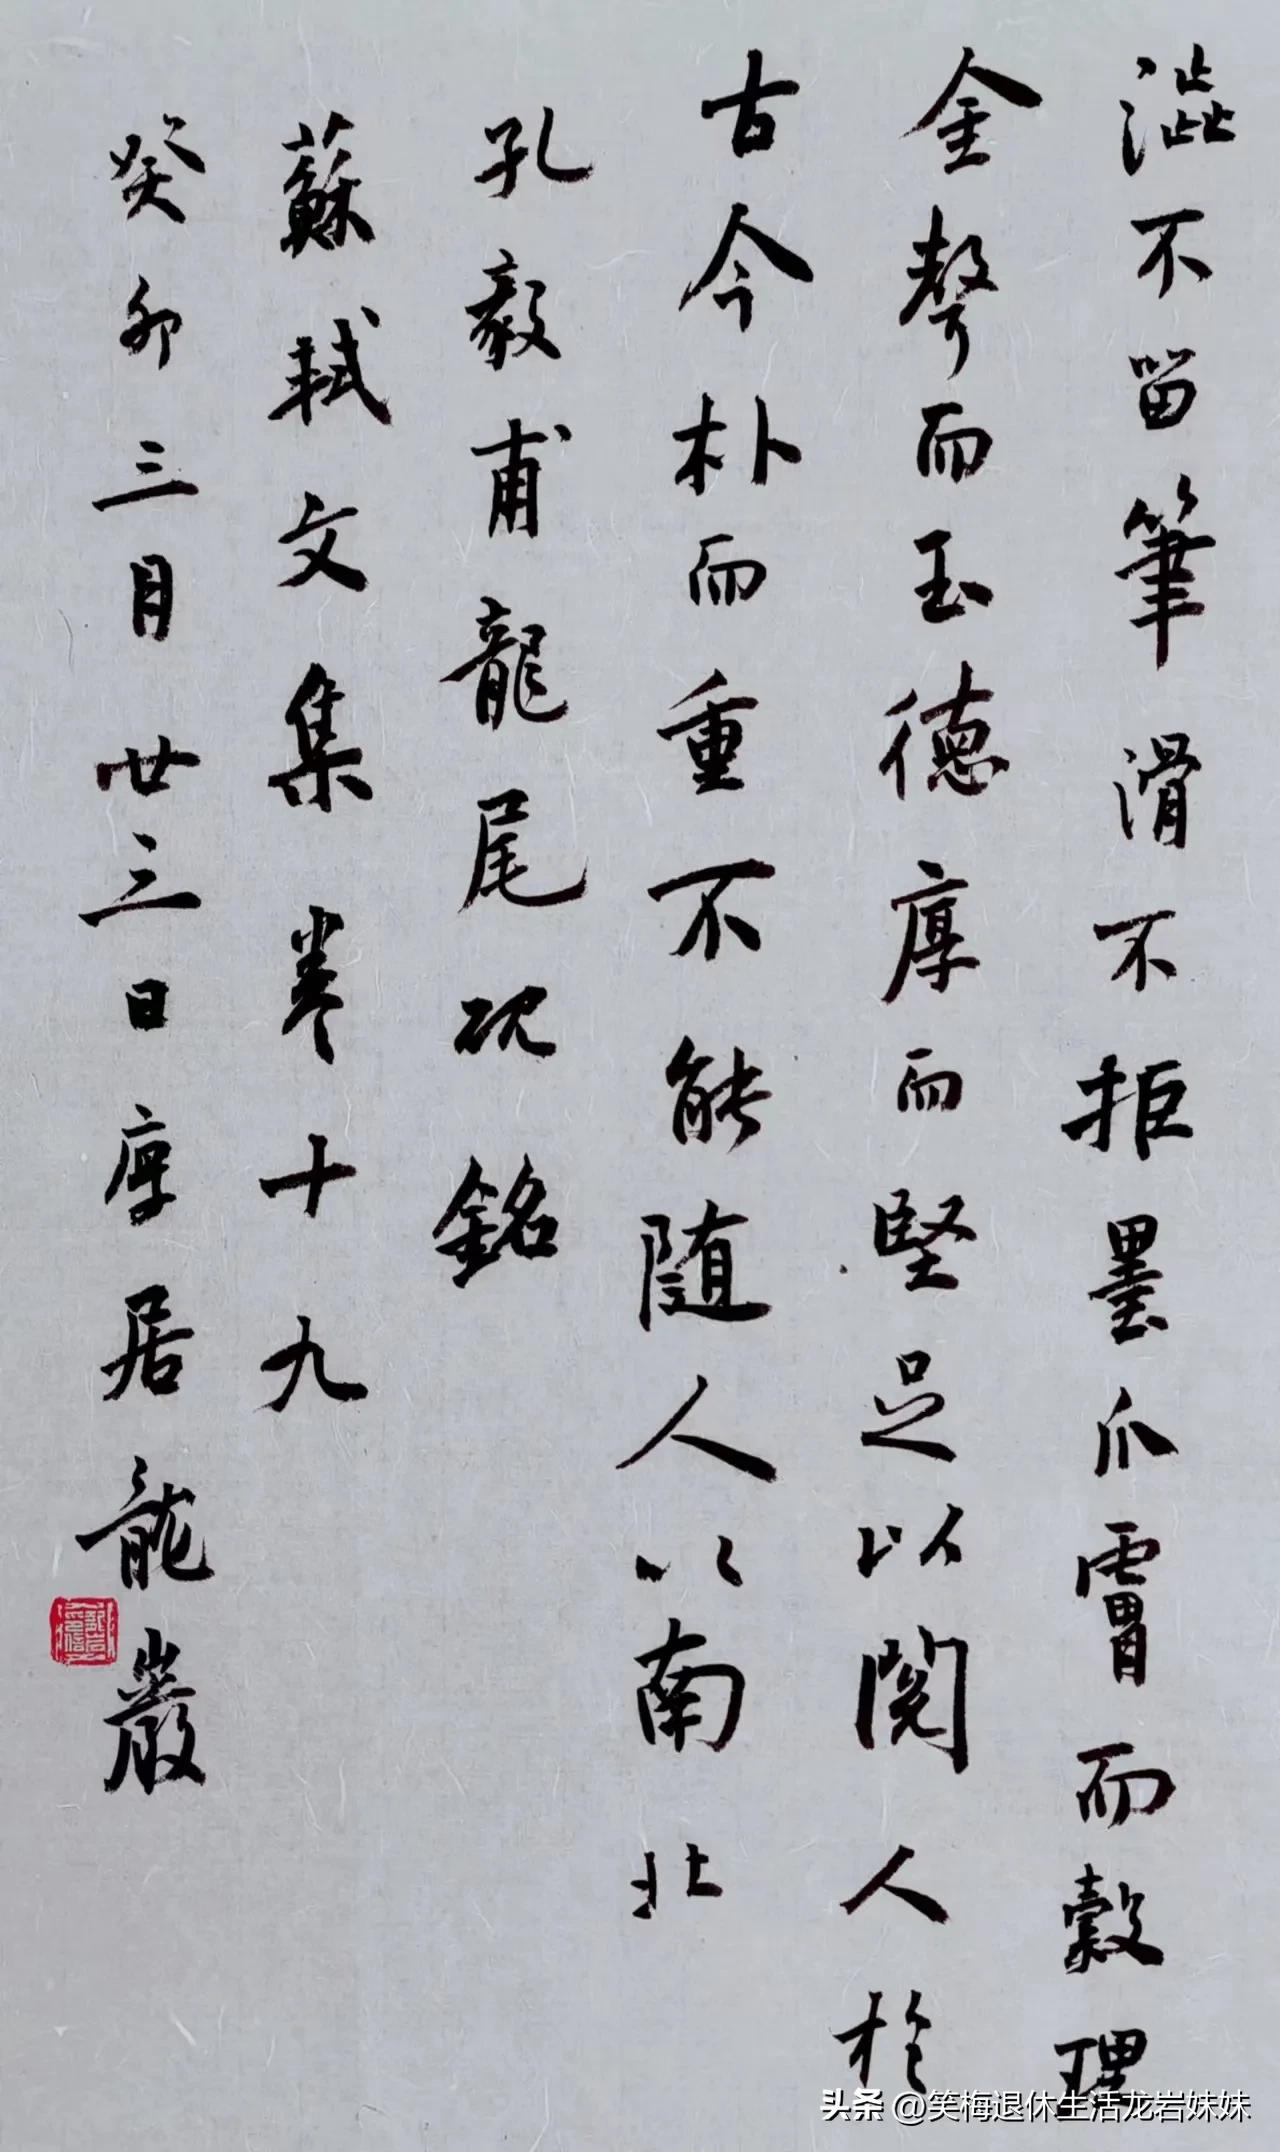 澁不留筆滑不拒墨爪膚而縠理
金聲而玉德厚而堅足以閱人於
古今朴而重不能随人以南北
孔毅甫龍尾硯銘
蘇軾文集卷十九
癸卯三月廿三日厚居龍巖
头条 @笑梅退休生活龙岩妹妹